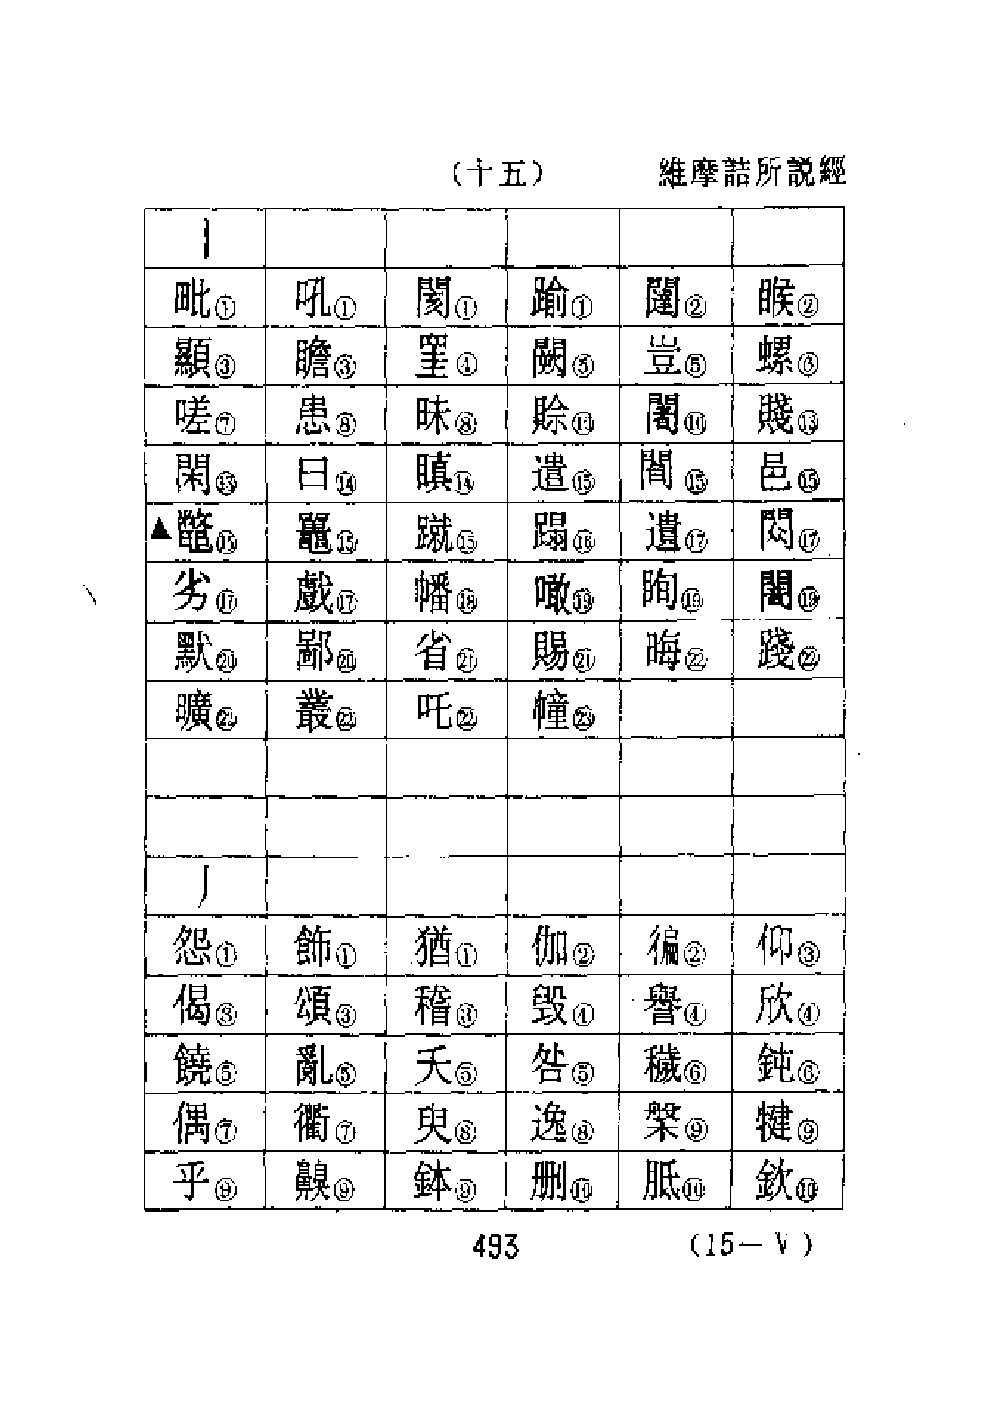 (十五) 維摩詰所説經
丨
毗① 吼① 閡① 踰① 闥② 睺②
顯③ 瞻③ 罣④ 闕⑤ 豈⑤ 螺⑥
嗟⑦ 患⑧ 昧⑧ 賒⑩ 闍⑩ 賤⑬
閑⑬ 曰⑭ 瞋⑭ 遣⑮ 閻⑮ 邑⑮
▲鼈⑮ 鼉⑮ 蹴⑮ 蹋⑯ 遺⑰ 悶⑰
劣⑰ 戲⑰ 幡⑱ 噉⑲ 眴⑲ 闇⑲
默⑳ 鄙⑳ 省㉑ 賜㉑ 晦㉒ 踐㉒
曠㉒ 叢㉒ 吒㉒ 幢㉓
丿
怨① 飾① 猶① 伽② 徧② 仰③
偈③ 頌③ 稽③ 毁④ 譽④ 欣④
饒⑤ 亂⑤ 夭⑤ 咎⑤ 穢⑥ 鈍⑥
偶⑦ 衢⑦ 臾⑧ 逸⑧ 槃⑨ 犍⑨
乎⑨ 鼻⑨ 鉢⑨ 删⑩ 胝⑩ 欽⑩
493 (15—V)